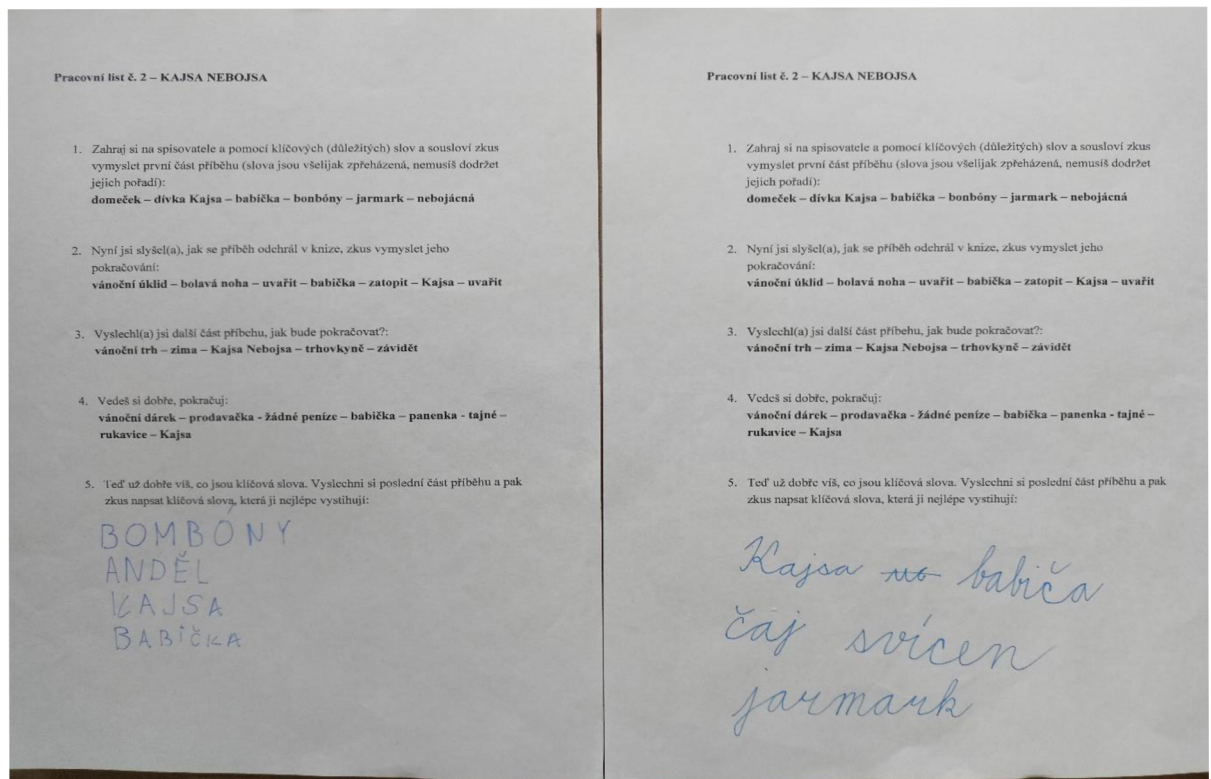 Pracovní list č. 2 – KAJSA NEBOJSA
1. Zahraj si na spisovatele a pomocí klíčových (důležitých) slov a sousloví zkus
vymyslet první část příběhu (slova jsou všelijak zpřeházená, nemusíš dodržet
jejich pořadí):
domeček – dívka Kajsa – babička – bonbóny – jarmark – nebojácná
2. Nyní jsi slyšel(a), jak se příběh odehrál v knize, zkus vymyslet jeho
pokračování:
vánoční úklid – bolavá noha – uvařit – babička – zatopit – Kajsa – uvařit
3. Vyslechl(a) jsi další část příběhu, jak bude pokračovat?:
vánoční trh – zima – Kajsa Nebojsa – trhovkyně – závidět
4. Vedeš si dobře, pokračuj:
vánoční dárek – prodavačka - žádné peníze – babička – panenka - tajné –
rukavice – Kajsa
5. Teď už dobře víš, co jsou klíčová slova. Vyslechni si poslední část příběhu a pak
zkus napsat klíčová slova, která ji nejlépe vystihují:
BOMBONY
ANDĚL
KAJSA
BABIČKA
Pracovní list č. 2 – KAJSA NEBOJSA
1. Zahraj si na spisovatele a pomocí klíčových (důležitých) slov a sousloví zkus
vymyslet první část příběhu (slova jsou všelijak zpřeházená, nemusíš dodržet
jejich pořadí):
domeček – dívka Kajsa – babička – bonbóny – jarmark – nebojácná
2. Nyní jsi slyšel(a), jak se příběh odehrál v knize, zkus vymyslet jeho
pokračování:
vánoční úklid – bolavá noha – uvařit – babička – zatopit – Kajsa – uvařit
3. Vyslechl(a) jsi další část příběhu, jak bude pokračovat?:
vánoční trh – zima – Kajsa Nebojsa – trhovkyně – závidět
4. Vedeš si dobře, pokračuj:
vánoční dárek – prodavačka - žádné peníze – babička – panenka - tajné –
rukavice – Kajsa
5. Teď už dobře víš, co jsou klíčová slova. Vyslechni si poslední část příběhu a pak
zkus napsat klíčová slova, která ji nejlépe vystihují:
Kajsa babiča
čaj svícen
jarmark